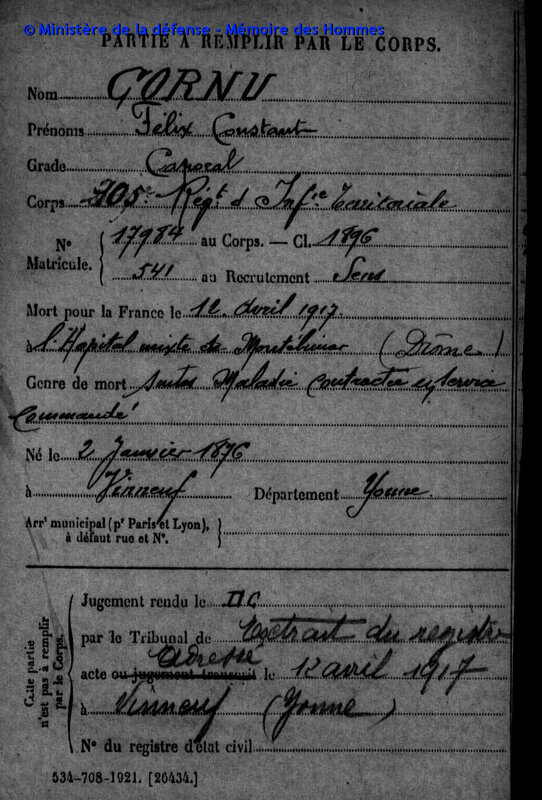 © Ministère de la défense - Mémoire des Hommes
PARTIE À REMPLIR PAR LE CORPS.
Nom CORNU
Prénoms Félix Constant
Grade Caporal
Corps 105e Regt d'Infie Territoriale
N° Matricule. 17984 au Corps. — Cl. 1896
541 au Recrutement Sens
Mort pour la France le 12 avril 1917
à l'Hôpital mixte de Montélimar (Drôme)
Genre de mort suites Maladie contractée en service
Commandé
Né le 2 Janvier 1876
à Vinneuf Département Yonne
Arrt municipal (pr Paris et Lyon),
à défaut rue et N°.
Cette partie n'est pas à remplir par le Corps.
Jugement rendu le
par le Tribunal de Extrait du registre
adressé
acte ou jugement transcrit le 12 avril 1917
à Vinneuf (Yonne)
N° du registre d'état civil
534-708-1921. [26434.]